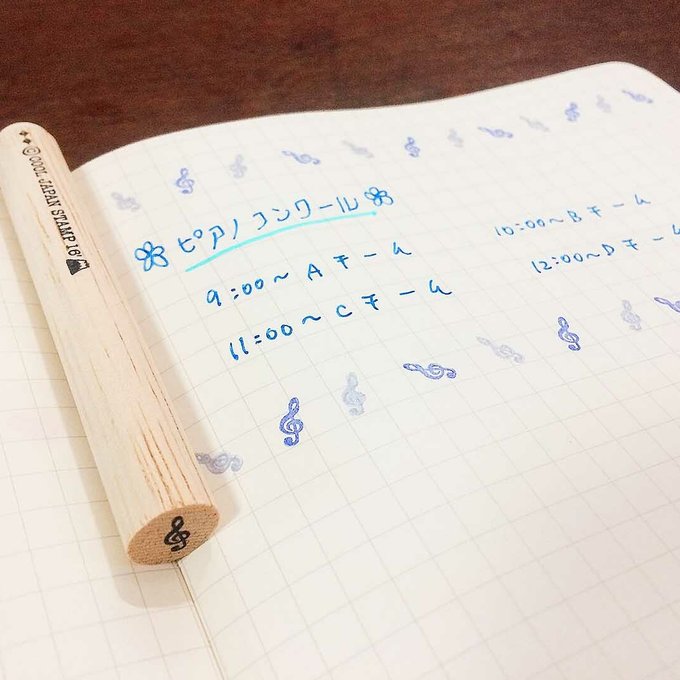 ©COOL JAPAN STAMP 16'
ピアノコンクール
9:00〜 Aチーム
10:00〜Bチーム
11:00〜Cチーム
12:00〜Dチーム